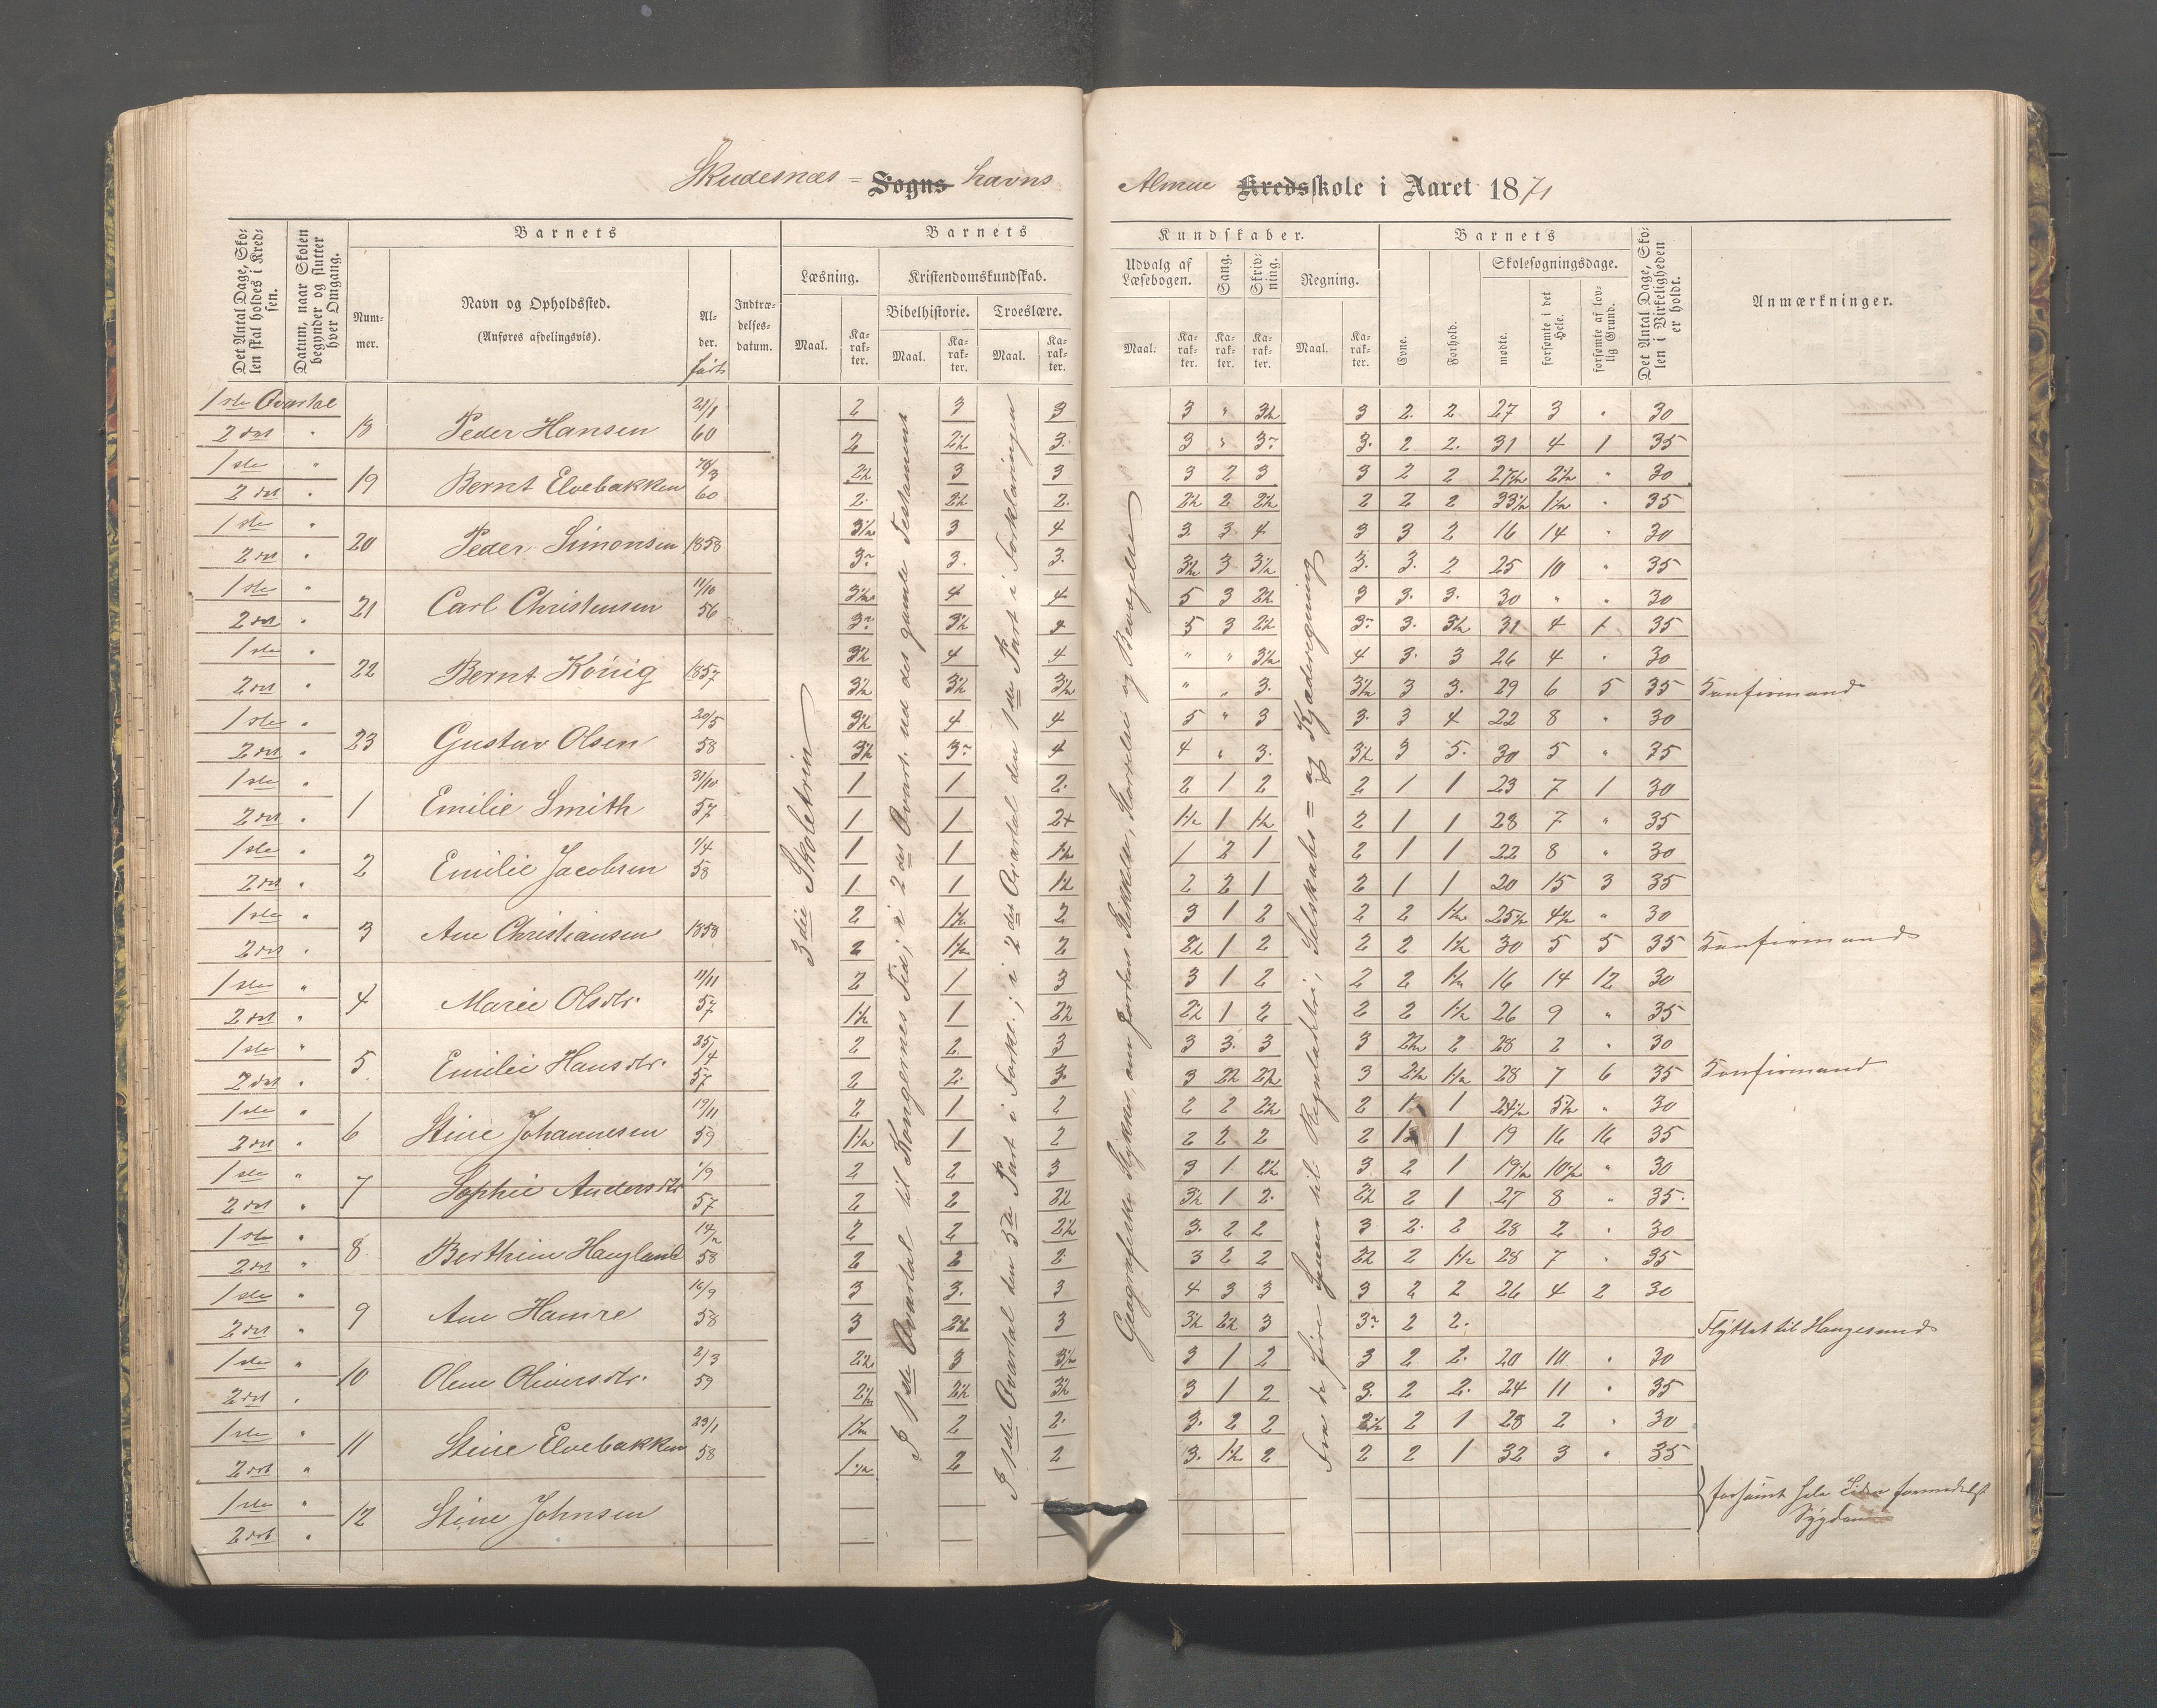 Skudesnæs = Sogns havns Almue Kredsskole i Aaret 1871
Det Antal Dage, Skolen skal holdes i Kredsen.
Datum, naar Skolen begynder og slutter hver Omgang.
Barnets
Nummer.
Navn og Opholdssted.
(Anføres afdelingsvis).
Alder.
født
Indtrædelsesdatum.
Barnets Kundskaber.
Læsning.
Kristendomskundskab.
Bibelhistorie.
Troeslære.
Udvalg af Læsebogen.
Sang.
Skrivning.
Regning.
Maal.
Karakter.
Barnets
Evne.
Forhold.
Skolesøgningsdage.
mødte.
forsømte i det Hele.
forsømte af lovlig Grund.
Det Antal Dage, Skolen i Virkeligheden er holdt.
Anmærkninger.
3die Skoletrin
I 1ste Qvartal til Kongernes Tid; i 2det Qvart. ud det gamle Testamente
I 1ste Qvartal den 3de Part i Forkl.; i 2det Qvartal den 1ste Part i Forklaringen
1ste Qvartal 18 Peder Hansen 21/1 60 2 3 3 3 " 3½ 3 2. 2 27 3 " 30
2det " 2 2½ 3. 3 " 3- 3. 2 2. 31 4 1 35
1ste " 19 Bernt Elvebakken 60 2½ 3 3 3 2 3 3 2 2 27½ 2½ " 30
2det " 2. 2½ 2. 2½ 2 2½ 2 2 2 33½ 1½ " 35
1ste " 20 Peder Simonsen 1858 3½ 3 4 3. 3 4 3 3 2 16 14 " 30
2det " 3- 3. 3. 3½ 3 3½ 3. 3. 2 25 10 " 35
1ste " 21 Carl Christensen 11/10 56 3½ 4 4 5 3 2½ 3 3. 3. 30 " " 30
2det " 3- 3½ 4 5 3 2½ 3- 3. 3½ 31 4 1 35
1ste " 22 Bernt König 1857 3½ 4 4 " " 3½ 4 3. 3 26 4 " 30
2det " 3½ 3½ 3½ " " 3. 3½ 3 3. 29 6 5 35 Konfirmand
1ste " 23 Gustav Olsen 20/5 58 3½ 4 4 5 " 3 3. 3 4 22 8 " 30
2det " 3½ 3- 4 4 " 3. 3½ 3 5. 30 5 " 35
1ste " 1 Emilie Smith 31/10 57 1 1 2. 2 1 2 2 1 1 23 7 1 30
2det " 1 1 2+ 1½ 1 1½ 2 1 1 28 7 " 35
1ste " 2 Emilie Jacobsen 1/4 58 1 1 1½ 1 2 1 2 1 1 22 8 " 30
2det " 1 1 1½ 2 2 1 2 1 1 20 15 3 35
1ste " 3 Ane Christiansen 1858 2 1½ 2 3 1 2 2 2 1½ 25½ 4½ " 30
2det " 2 1½ 2 2½ 1 2 2 2 1½ 30 5 5 35 Konfirmand
1ste " 4 Marie Olsdtr. 11/11 57 2 1 3 3 1 2 2 2 1½ 16 14 12 30
2det " 1½ 1 2½ 2½ 1 2 2 2 1½ 26 9 " 35
1ste " 5 Emilie Hansdtr. 25/4 57 2 2 3 3 3. 3 3 2½ 2 28 2 " 30
2det " 2 2. 3. 3 2½ 2½ 3 2½ 1½ 28 7 6 35 Konfirmand
1ste " 6 Stine Johannesen 19/11 59 2 1 2 2 2 2½ 2 1 1 24½ 5½ " 30
2det " 1½ 1 2 2 2 2 2 1 19 16 16 35
1ste " 7 Sophie Andersdtr 1/9 57 2 2 3 3 1 2½ 3. 2 1 19½ 10½ " 30
2det " 2 2 2½ 3½ 1 2. 2½ 2 1 27 8 " 35.
1ste " 8 Berthine Haugland 58 2 2 2½ 3. 2 2 3 2. 2 28 2 " 30
2det " 2 2 2. 3 2 2 2½ 2 1½ 28 7 " 35
1ste " 9 Ane Hamre 16/9 58 3 3. 3 4 3 3 3 2 2 26 4 2 30
2det " 3 2½ 3 3½ 2½ 3 3- 2 2. Flyttet til Haugesund
1ste " 10 Olene Oliversdtr. 2/3 59 2½ 3 3½ 3 1 2 3 2 2. 20 10 " 30
2det " 2½ 2½ 3½ 3 1 2 3. 2 2. 24 11 " 35
1ste " 11 Stine Elvebakken 23/1 58 1½ 2 2. 3. 2 2 2½ 2 1 28 2 " 30
2det " 1½ 2 2 3. 1½ 2 2 2 1 32 3 " 35
1ste " 12 Stine Johnsen forsømt hele Tiden formedelst
2det " Sygdom
Geografiske Stykker om Jorden Størrelse og Bevægelse
Fra de fire Spesies til Reguladetri, Selskabs = og Kjæderegning